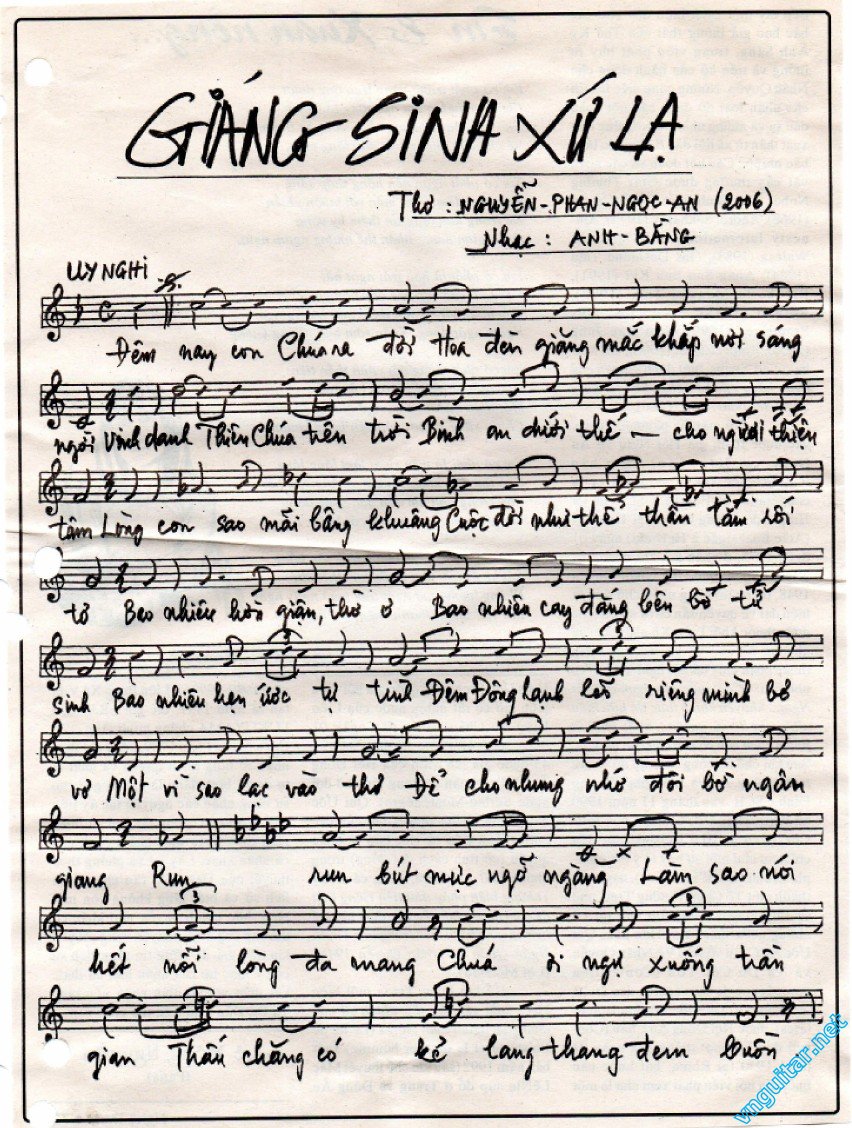 GIÁNG SINH XỨ LẠ
Thơ : NGUYỄN-PHAN-NGỌC-AN (2006)
Nhạc : ANH-BẰNG
UY NGHI
Đêm nay con Chúa ra đời Hoa đèn giăng mắc khắp nơi sáng
ngời Vinh danh Thiên Chúa trên trời Bình an dưới thế — cho người thiện
tâm Lòng con sao mãi bâng khuâng Cuộc đời như thể thân tằm rối
tơ Bao nhiêu hờn giận, thờ ơ Bao nhiêu cay đắng bên bờ tử
sinh Bao nhiêu hẹn ước tự tình Đêm Đông lạnh lẽo riêng mình bơ
vơ Một vì sao lạc vào thơ Để cho nhung nhớ đôi bờ ngân
giang Run run bút mực ngỡ ngàng Làm sao nói
hết nỗi lòng đa mang Chúa ơi ngự xuống trần
gian Thấu chăng có kẻ lang thang đem buồn
vnguitar.net